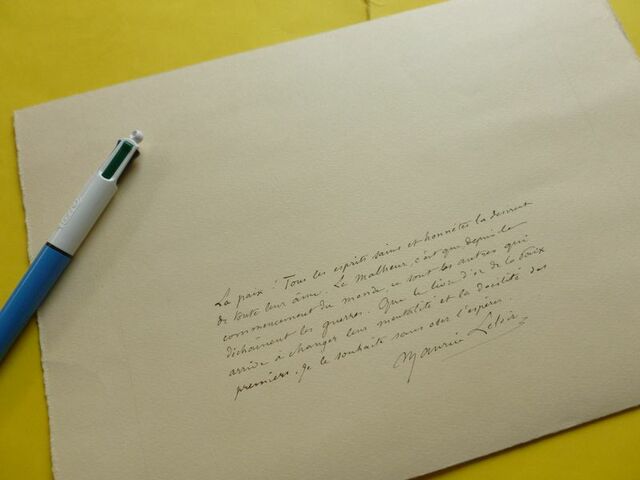 La paix ! Tous les esprits sains et honnêtes la désirent
de toute leur âme. Le Malheur, c'est que, depuis le
commencement du monde, ce sont les autres qui
déchaînent les guerres. Que le livre d'or de la paix
arrive à changer leur mentalité et la docilité des
premiers. Je le souhaite sans oser l'espérer.
Maurice